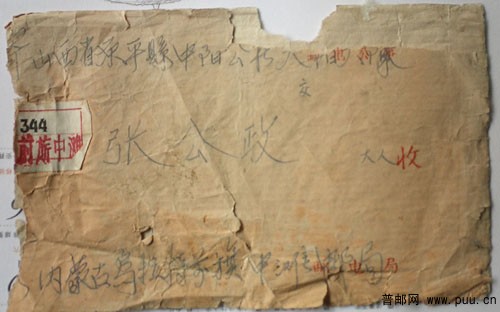 山西省原平縣中阳公社
交
344
前旗中滩
张公政 大人收
内蒙古烏拉特前旗中滩 局
普邮网 www.puu.cn